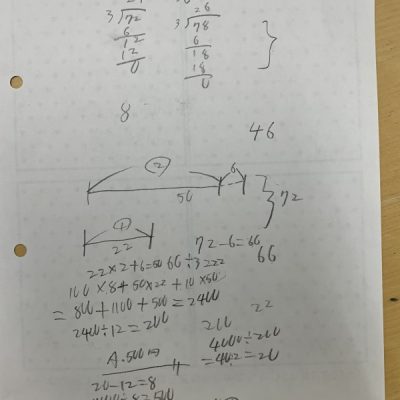 26
3)72 3)78
6 6
12 18
12 18
0 0
8
46
② 6
50
72
①
22
72-6=66
22×2+6=50 66÷3=22
66
100×8+50×22+10×50
=800+1100+500=2400
22
2400÷12=200
200
4000÷200
A.500m
=40÷2=20
20-12=8